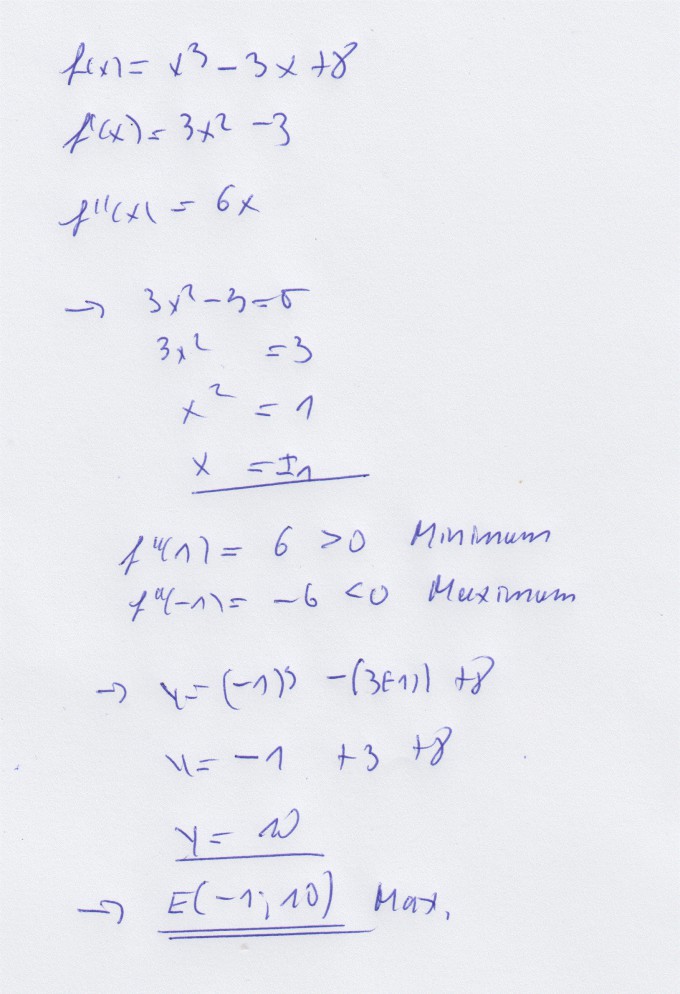 f(x) = x³ - 3x + 8
f'(x) = 3x² - 3
f''(x) = 6x
→ 3x² - 3 = 0
3x² = 3
x² = 1
x = ±1
f''(1) = 6 > 0 Minimum
f''(-1) = -6 < 0 Maximum
→ y = (-1)³ - (3(-1)) + 8
y = -1 + 3 + 8
y = 10
→ E(-1; 10) Max.